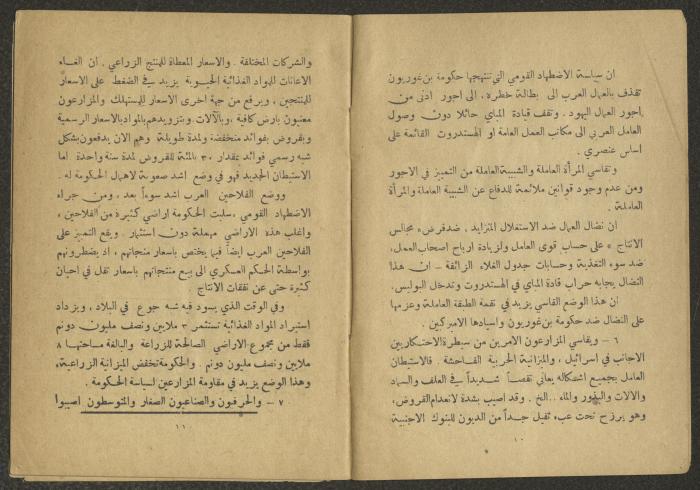 ان سياسة الاضطهاد القومي التي تنتهجها حكومة بن غوريون
تقذف بالعمال العرب الى بطالة خطره، الى اجور ادنى من
اجور العمال اليهود. وتقف قيادة المباي حائلا دون وصول
العامل العربي الى مكاتب العمل العامة او الهستدروت القائمة على
اساس عنصري.
وتقاسي المرأة العاملة والشبيبة العاملة من التمييز في الاجور
ومن عدم وجود قوانين ملائمة للدفاع عن الشبيبة العاملة والمرأة
العاملة.
ان نضال العمال ضد الاستغلال المتزايد، ضد فرض « مجالس
الانتاج » على حساب قوى العامل ولزيادة ارباح اصحاب العمل،
ضد سوء التغذية وحسابات جدول الغلاء الزائفة – ان هذا
النضال يجابه حراب قادة المباي في الهستدروت وتدخل البوليس.
ان هذا الوضع القاسي يزيد في نقمة الطبقة العاملة وعزمها
على النضال ضد حكومة بن غوريون واسيادها الاميركيين.
٦ – ويقاسي المزارعون الامرين من سيطرة الاحتكاريين
الاجانب في اسرائيل، والميزانية الحربية الفاحشة. فالاستيطان
العامل بجميع اشكاله يعاني نقصاً شديداً في العلف والسماد
والآلات والبذور والماء .. الخ. وقد اصيب بشدة لانعدام القروض،
وهو يرزح تحت عبء ثقيل جداً من الديون للبنوك الاجنبية
١٠
والشركات المختلفة. والاسعار المعطاة للمنتج الزراعي. ان الغاء
الاعانات للمواد الغذائية الحيوية يزيد في الضغط على الاسعار
للمنتجين، ويرفع من جهة اخرى الاسعار للمستهلك والمزارعون
معنيون بارض كافية، وبالآلات. وبتزويدهم بالمواد بالاسعار الرسمية
وبقروض بفوائد منخفضة ولمدة طويلة، وهم الان يدفعون بشكل
شبه رسمي فوائد بمقدار ٣٠ بالمئة للقروض لمدة سنة واحدة اما
الاستيطان الجديد فهو في وضع اشد صعوبة لاهمال الحكومة له.
ووضع الفلاحين العرب اشد سوءاً بعد، ومن جراء
الاضطهاد القومي، سلبت الحكومة اراضي كثيرة من الفلاحين،
واغلب هذه الاراضي مهملة دون استثمار. ويقع التمييز على
الفلاحين العرب ايضاً فيما يختص باسعار منتجاتهم، اذ يضطرونهم
بواسطة الحكم العسكري الى بيع منتجاتهم باسعار تقل في احيان
كثيرة حتى عن نفقات الانتاج
وفي الوقت الذي يسود فيه شبه جوع في البلاد، ويزداد
استيراد المواد الغذائية تستثمر ٣ ملايين ونصف مليون دونم
فقط من مجموع الاراضي الصالحة للزراعة والبالغة مساحتها ٨
ملايين ونصف مليون دونم. والحكومة تخفض الميزانية الزراعية،
وهذا الوضع يزيد في مقاومة المزارعين لسياسة الحكومة.
٧ – والحرفيون والصناعيون الصغار والمتوسطون اصيبوا
١١